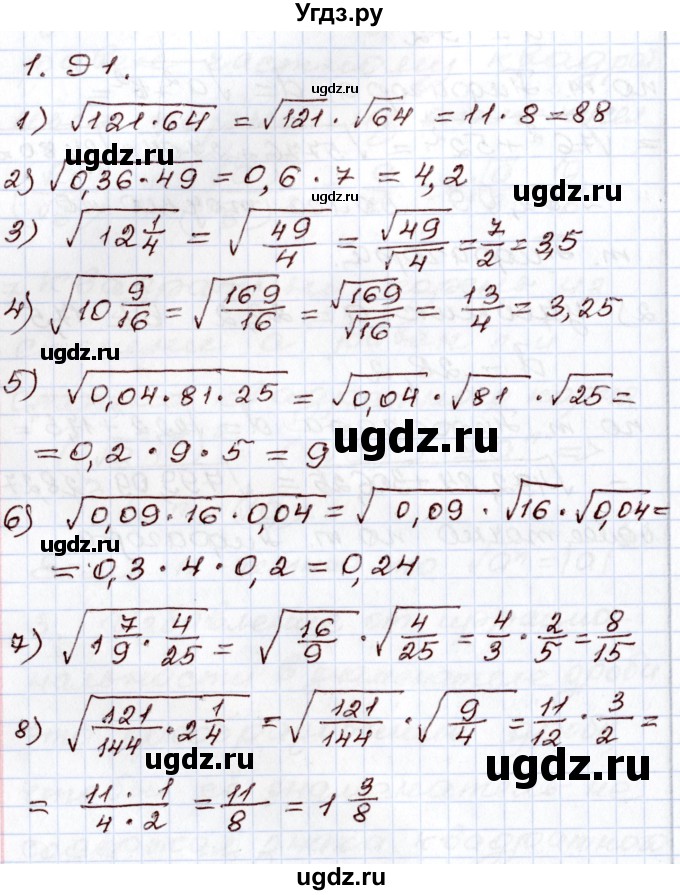 Угдз.ру
1.91.
1) √(121·64) = √121 · √64 = 11·8 = 88
ugdz.ru
2) √(0,36·49) = 0,6·7 = 4,2
3) √(12 1/4) = √(49/4) = √49/√4 = 7/2 = 3,5
ugdz.ru ugdz.ru
4) √(10 9/16) = √(169/16) = √169/√16 = 13/4 = 3,25
ugdz.ru
5) √(0,04·81·25) = √0,04 · √81 · √25 =
= 0,2·9·5 = 9
ugdz.ru
6) √(0,09·16·0,04) = √0,09 · √16 · √0,04 =
ugdz.ru
= 0,3·4·0,2 = 0,24
7) √(1 7/9 · 4/25) = √(16/9) · √(4/25) = 4/3 · 2/5 = 8/15
8) √(121/144 · 2 1/4) = √(121/144) · √(9/4) = 11/12 · 3/2 =
ugdz.ru ugdz.ru
= (11·1)/(4·2) = 11/8 = 1 3/8
ugdz.ru